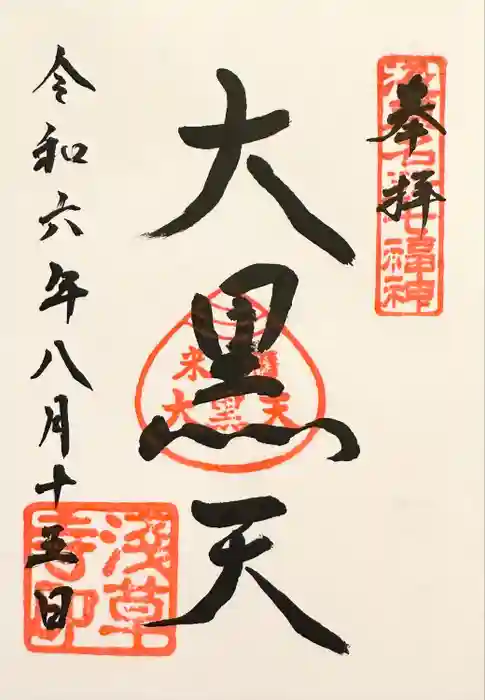 奉拝
浅草名所七福神
大黒天
米櫃
大黒天
令和六年八月十五日
浅草寺印